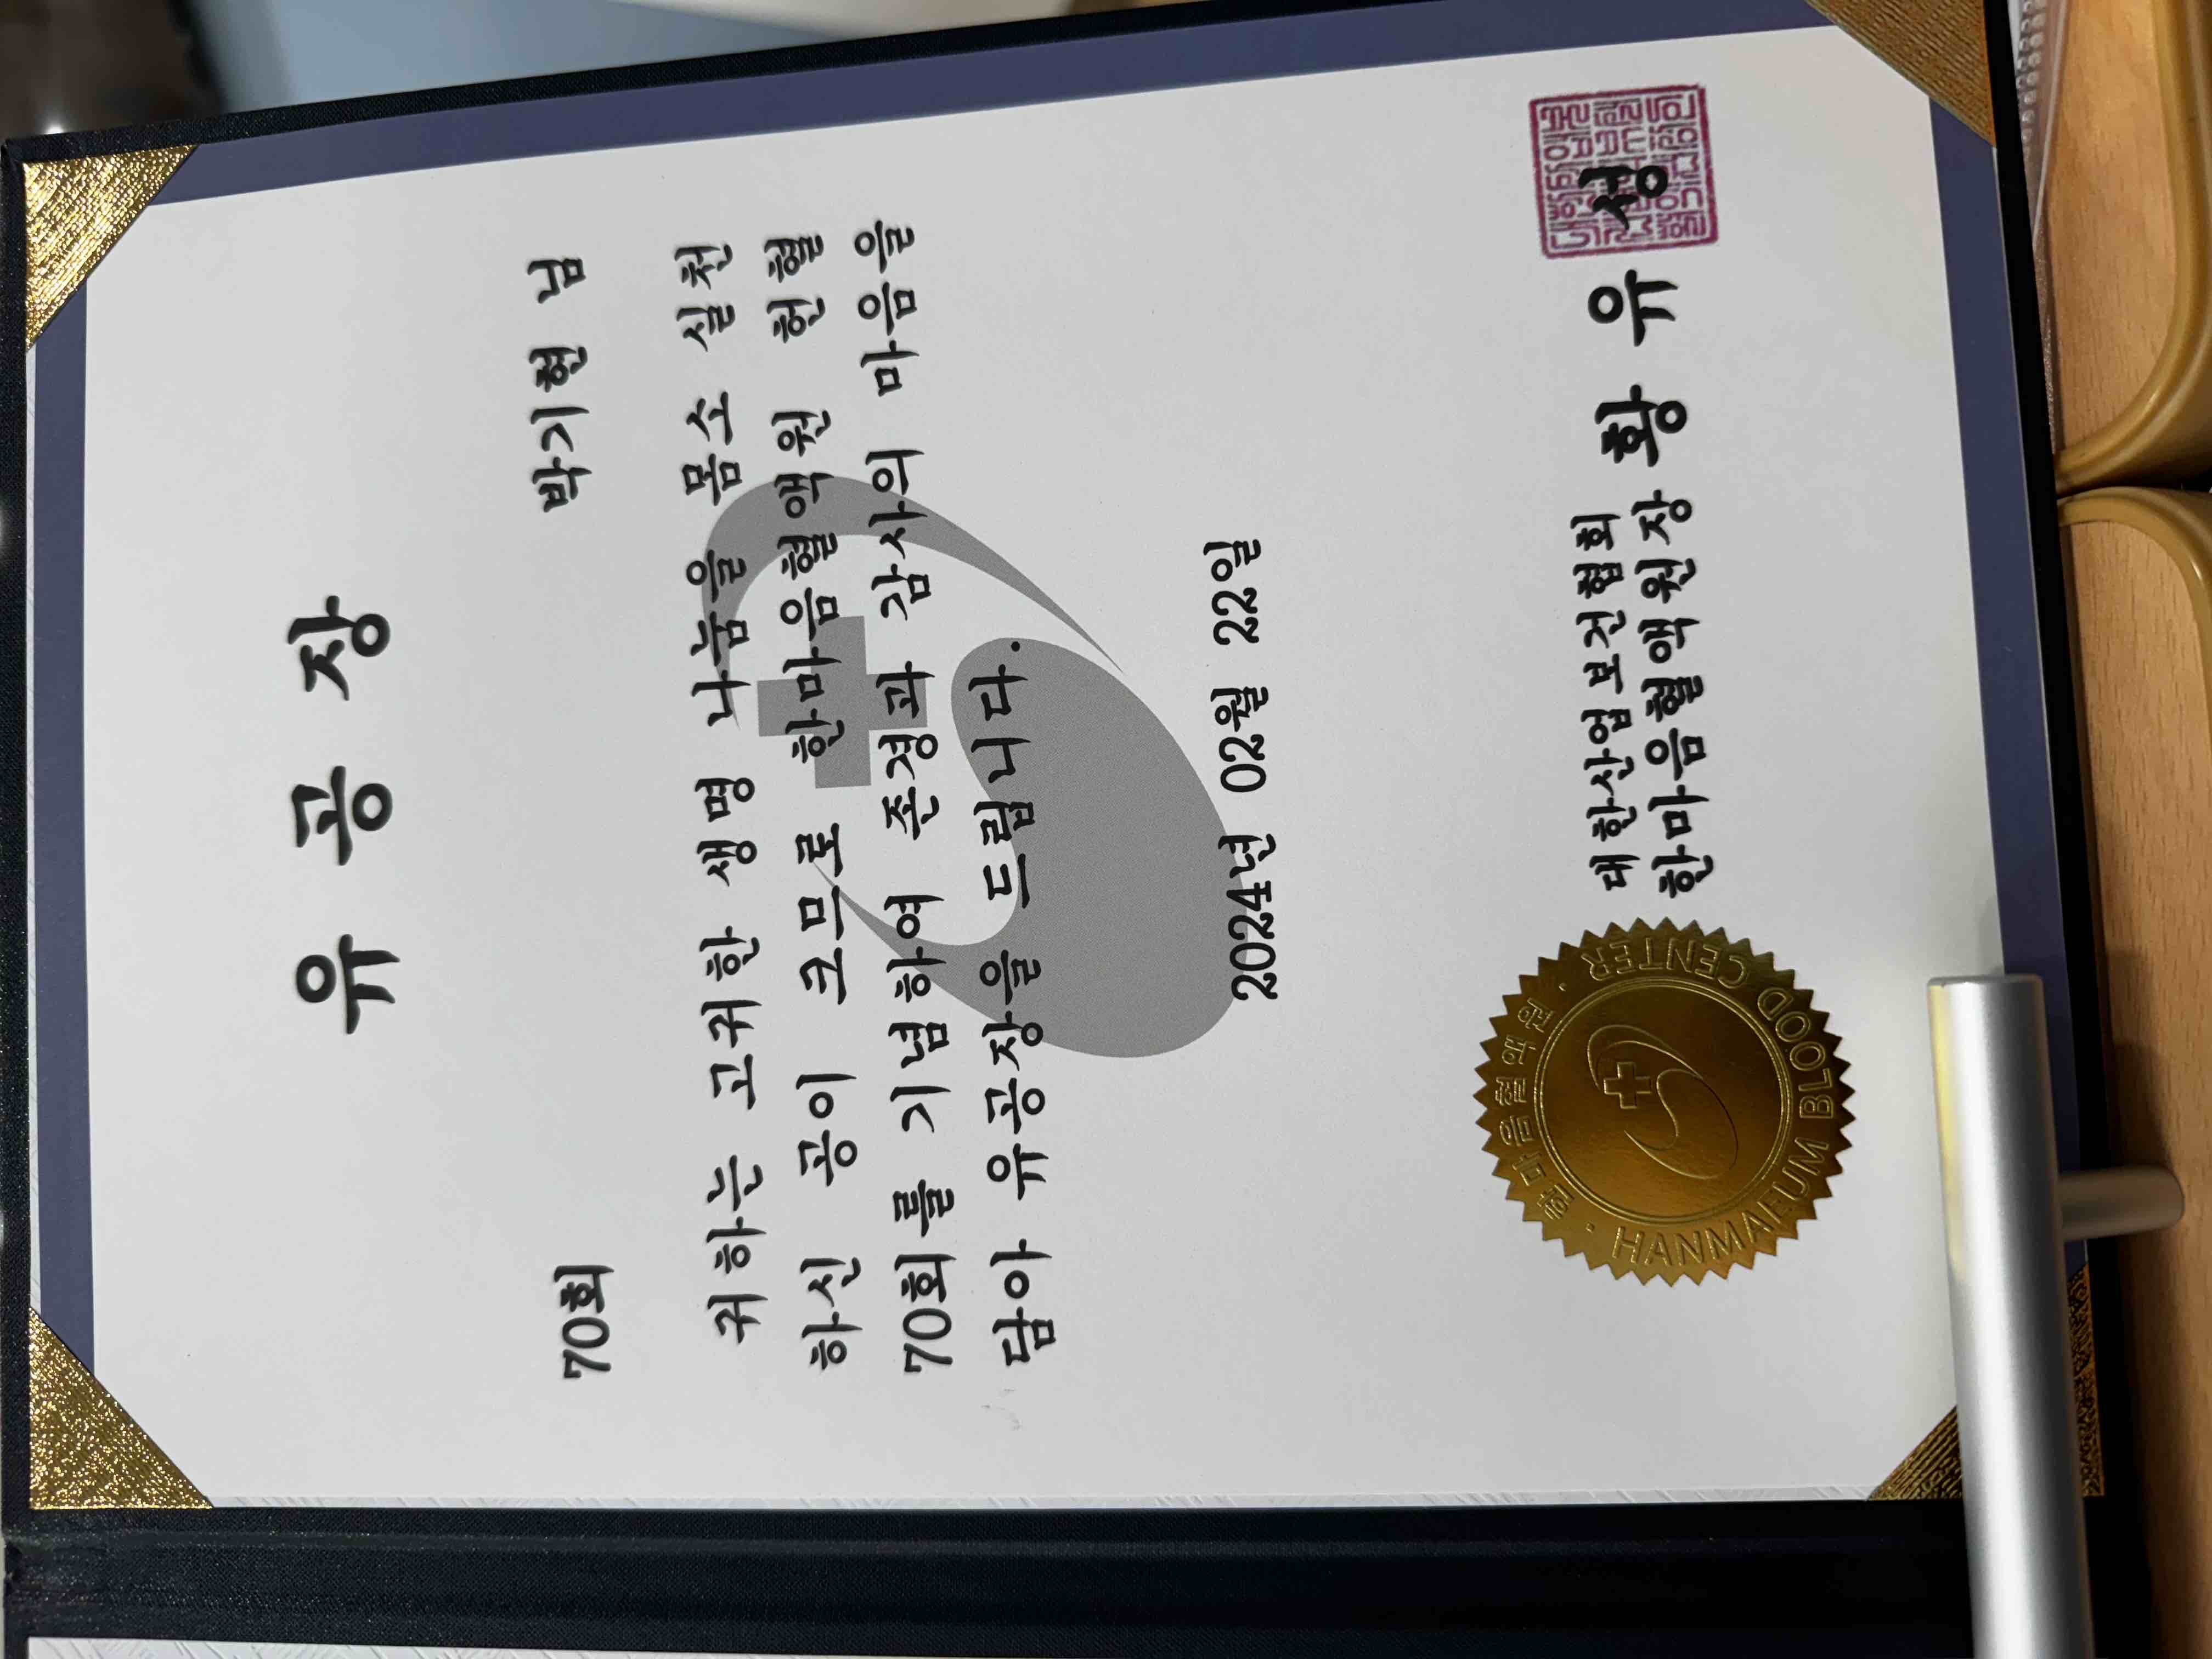 유 공 장
70회 박기현 님
귀하는 고귀한 생명 나눔을 몸소 실천
하신 공이 크므로 한마음혈액원 헌혈
70회를 기념하여 존경과 감사의 마음을
담아 유공장을 드립니다.
2024년 02월 22일
대한산업보건협회
한마음혈액원장 황 유 성
한마음혈액원
HANMAEUM BLOOD CENTER